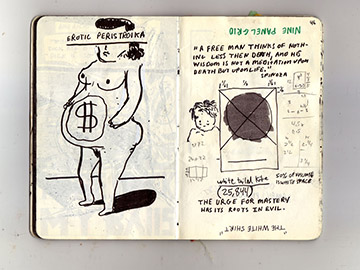 EROTIC PERISTROIKA
$
NINE PANEL GRID
"A FREE MAN THINKS OF NOTH-
ING LESS THEN DEATH, AND HIS
WISDOM IS NOT A MEDITATION UPON
DEATH BUT UPON LIFE."
SPINOZA
white tulal kite
25,844
50% OF VOLUME
IS WHITE SPACE
THE URGE FOR MASTERY
HAS ITS ROOTS IN EVIL.
"THE WHITE SHIRT"